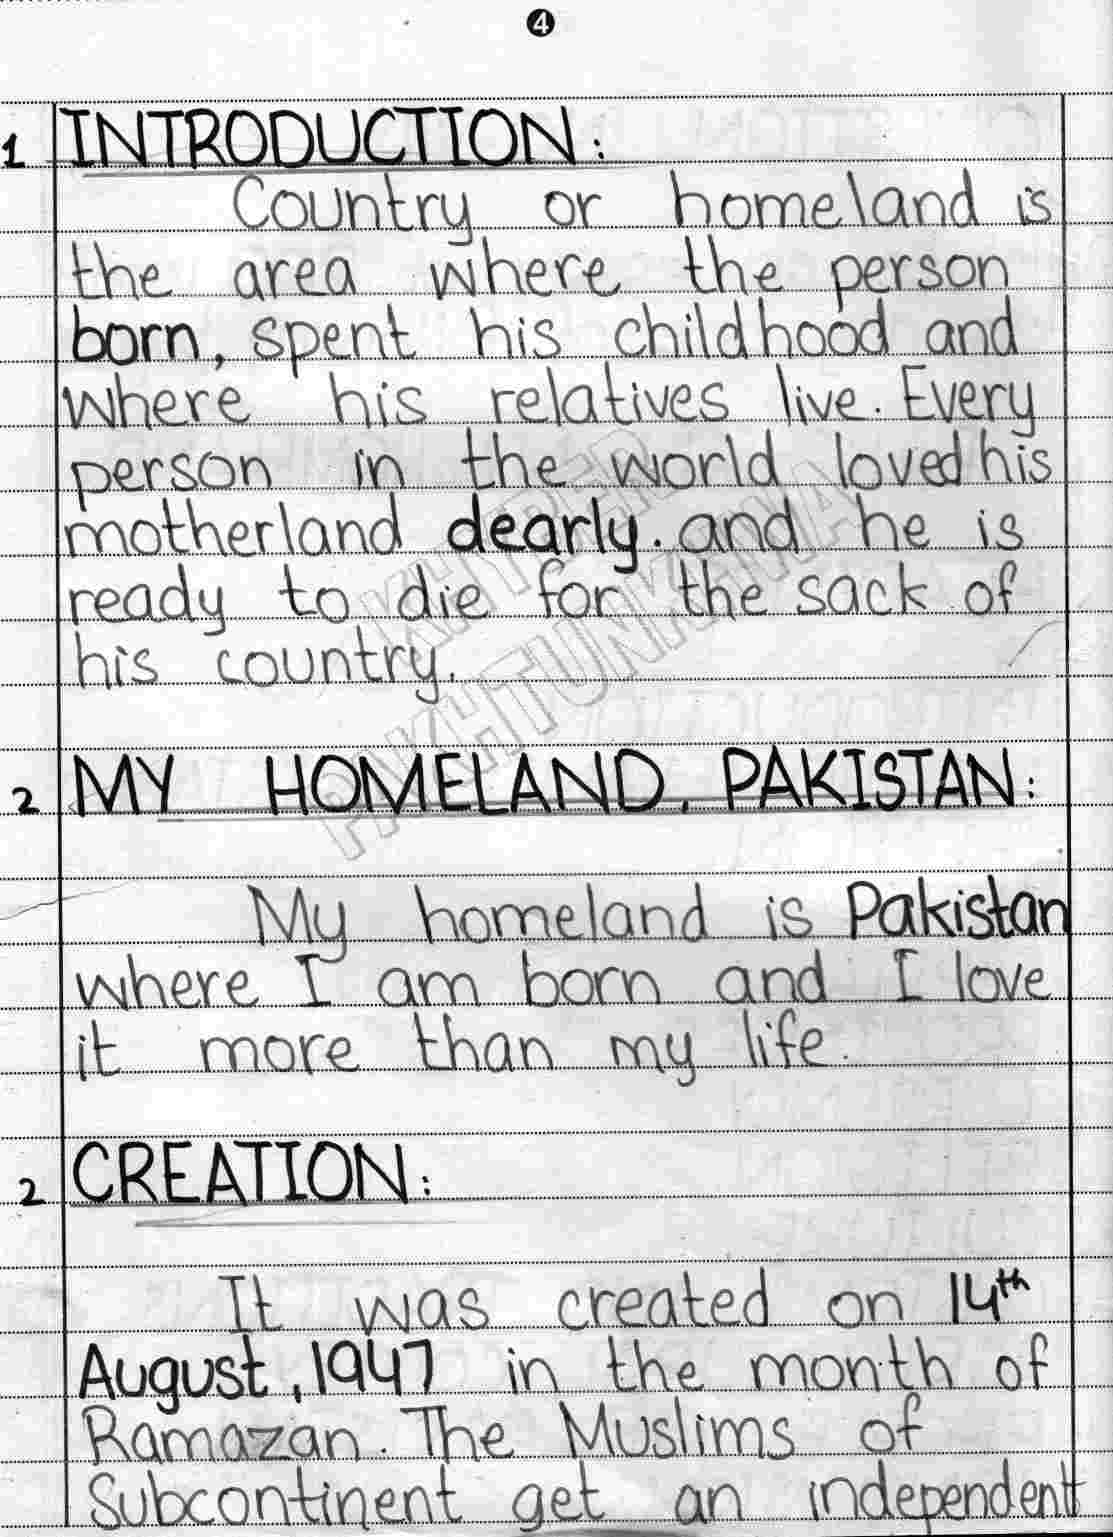 4
1 INTRODUCTION:
Country or homeland is
the area where the person
born, spent his childhood and
where his relatives live. Every
person in the world loved his
motherland dearly. and he is
ready to die for the sack of
his country.
KHYBER
PAKHTUNKHWA
2 MY HOMELAND, PAKISTAN:
My homeland is Pakistan
where I am born and I love
it more than my life.
2 CREATION:
It was created on 14th
August, 1947 in the month of
Ramazan. The Muslims of
Subcontinent get an independent